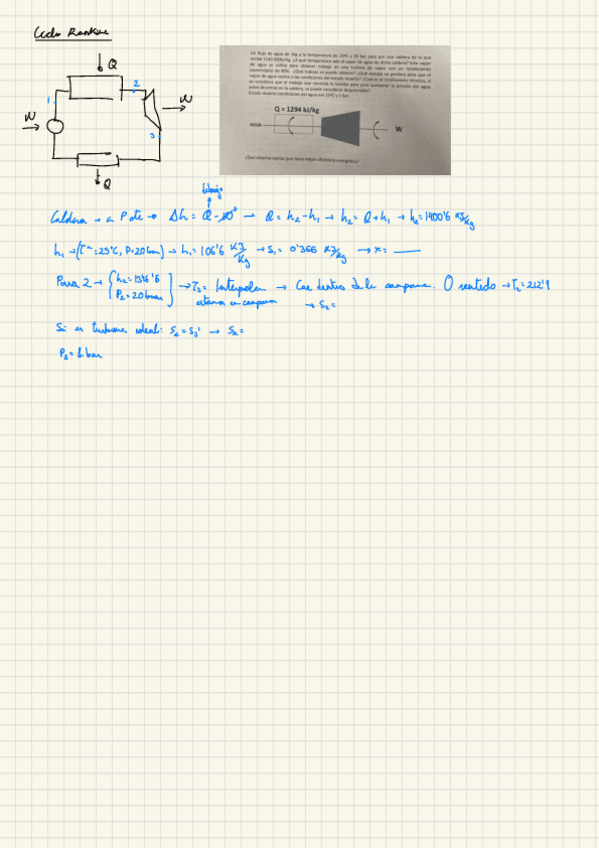 Ciclo Rankine
Q
1
2
W
W
3
Q
Un flujo de agua de 1kg a la temperatura de 25ºC y 20 bar pasa por una caldera de la que
recibe 1294 000J/kg. ¿A qué temperatura sale el vapor de agua de dicha caldera? Este vapor
de agua se utiliza para obtener trabajo en una turbina de vapor con un rendimiento
isoentrópico de 80%. ¿Qué trabajo se puede obtener? ¿Qué energía se perderá para que el
vapor de agua vuelva a las condiciones del estado muerto? ¿Cuál es el rendimiento térmico, si
se considera que el trabajo que necesita la bomba para para aumentar la presión del agua
antes de entrar en la caldera, se puede considerar despreciable?
Estado muerto condiciones del agua son 25ºC y 1 bar
Q = 1294 kJ/kg
AGUA
W
¿Qué sistema opinas que tiene mejor eficiencia energética?
trabajo
Caldera → a P cte → Δh = Q - W⁰ → Q = h₂ - h₁ → h₂ = Q + h₁ → h₂ = 1400'6 KJ/Kg
h₁ → (Tª = 25ºC, P = 20 bar) → h₁ = 106'6 KJ/Kg → S₁ = 0'366 KJ/Kg → x =
Para 2 → { h₂ = P₂ = 20 bar } → T₂ = Interpolar → Cae dentro de la campana. O sentido → T₂ = 212'9
estamos en campana → S₂ =
Si es turbina ideal: S₂ = S₃' → S₂ =
P₃ = 1 bar